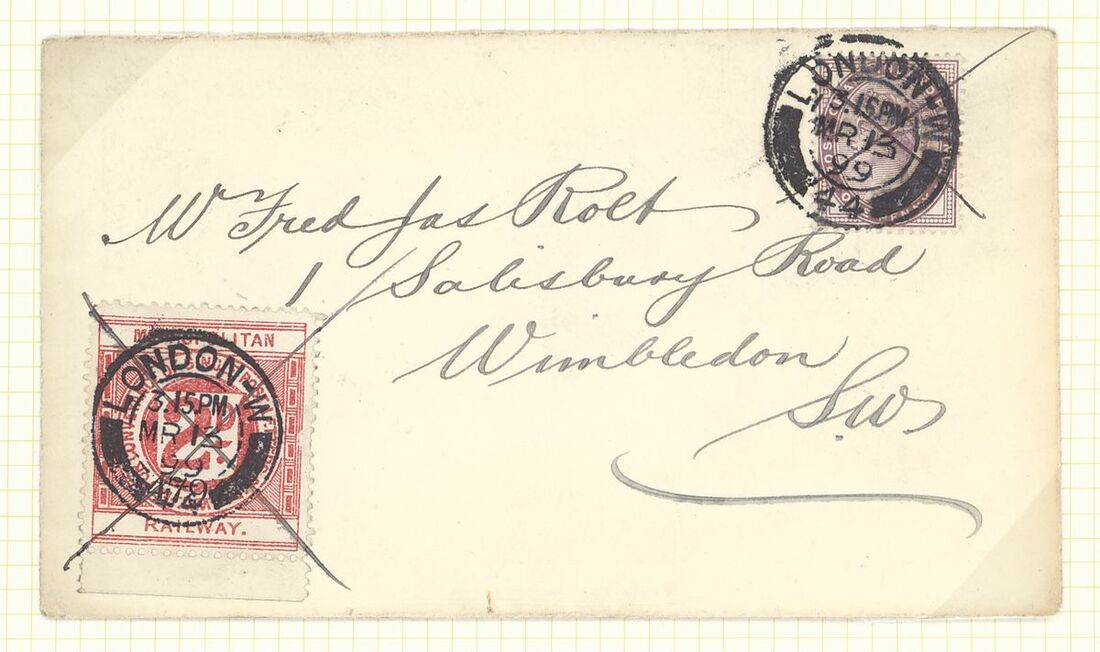 LONDON-W
3.15PM
MR 13
99
44
Mr Fred Jas Rolt
1 Salisbury Road
Wimbledon
S.W.
METROPOLITAN
LONDON-W
3.15PM
MR 13
99
RAILWAY.